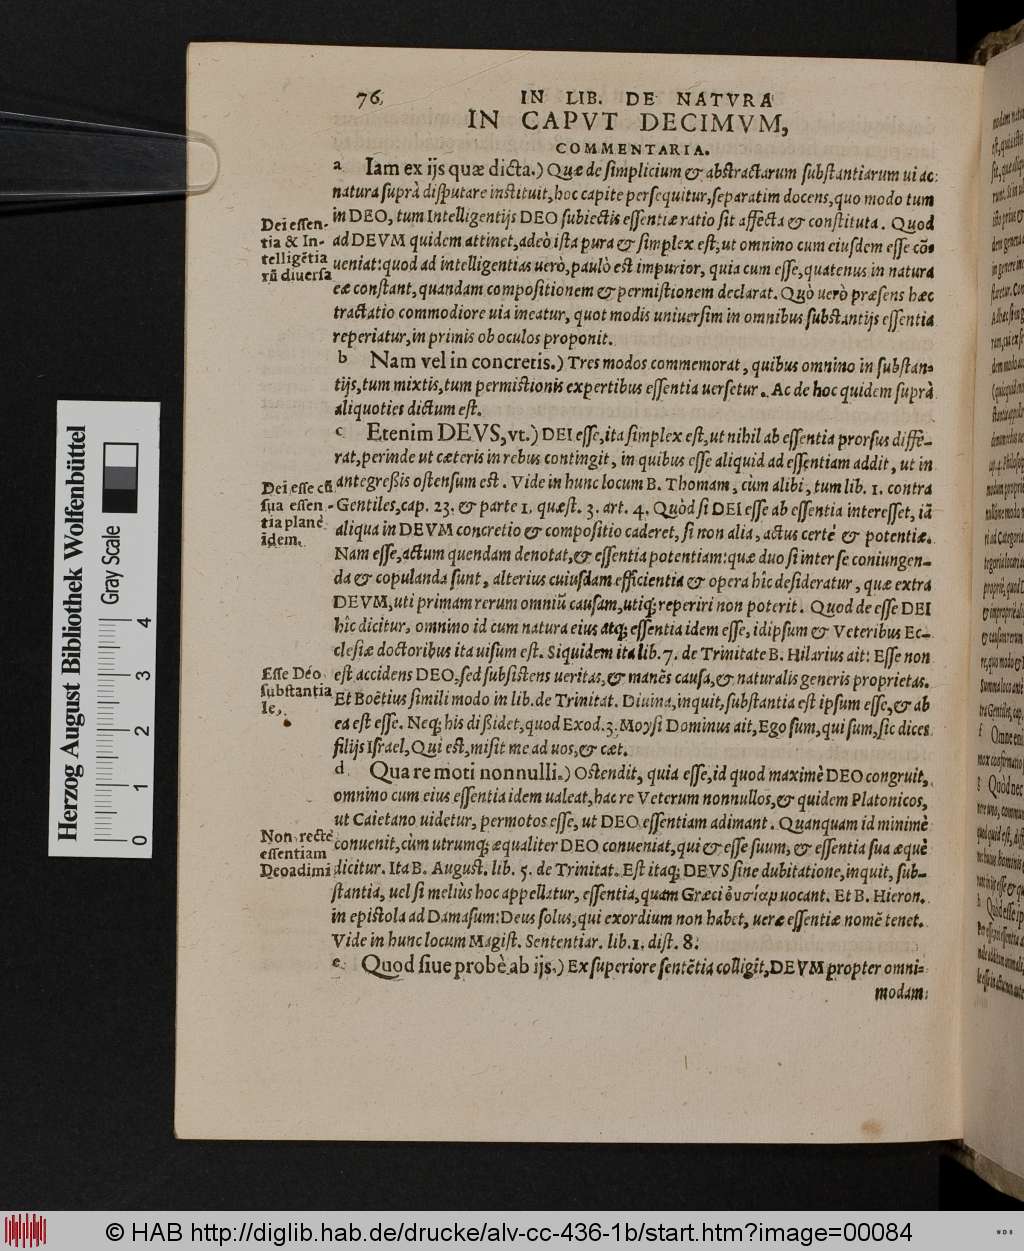 76
IN LIB. DE NATVRA
IN CAPVT DECIMVM,
COMMENTARIA.
a Iam ex ijs quæ dicta.) Quæ de simplicium & abstractarum substantiarum ui ac
natura suprà disputare instituit, hoc capite persequitur, separatim docens, quo modo tum
in DEO, tum Intelligentijs DEO subiectis essentiæ ratio sit affecta & constituta. Quod
ad DEVM quidem attinet, adeò ista pura & simplex est, ut omnino cum eiusdem esse cõ-
ueniat: quod ad intelligentias uerò, paulò est impurior, quia cum esse, quatenus in natura
eæ constant, quandam compositionem & permistionem declarat. Quò uerò præsens hæc
tractatio commodiore uia ineatur, quot modis uniuersim in omnibus substantijs essentia
reperiatur, in primis ob oculos proponit.
Dei essen-
tia & In-
telligẽtia
rũ diuersa
b Nam vel in concretis.) Tres modos commemorat, quibus omnino in substan-
tijs, tum mixtis, tum permistionis expertibus essentia uersetur. Ac de hoc quidem suprà
aliquoties dictum est.
c Etenim DEVS, vt.) DEI esse, ita simplex est, ut nihil ab essentia prorsus diffe-
rat, perinde ut cæteris in rebus contingit, in quibus esse aliquid ad essentiam addit, ut in
antegreßis ostensum est. Vide in hunc locum B. Thomam, cùm alibi, tum lib. 1. contra
Gentiles, cap. 23. & parte 1, quæst. 3. art. 4. Quòd si DEI esse ab essentia interesset, iã
aliqua in DEVM concretio & compositio caderet, si non alia, actus certè & potentiæ.
Nam esse, actum quendam denotat, & essentia potentiam: quæ duo si inter se coniungen-
da & copulanda sunt, alterius cuiusdam efficientia & opera hîc desideratur, quæ extra
DEVM, uti primam rerum omniũ causam, utiq; reperiri non poterit. Quod de esse DEI
hîc dicitur, omnino id cum natura eius atq; essentia idem esse, idipsum & Veteribus Ec-
clesiæ doctoribus ita uisum est. Siquidem ita lib. 7. de Trinitate B. Hilarius ait: Esse non
est accidens DEO, sed subsistens ueritas, & manẽs causa, & naturalis generis proprietas.
Et Boëtius simili modo in lib. de Trinitat. Diuina, inquit, substantia est ipsum esse, & ab
ea est esse. Neq; his dißidet, quod Exod. 3. Moysi Dominus ait, Ego sum, qui sum, sic dices
filijs Israel, Qui est, misit me ad uos, & cæt.
Dei esse cũ
sua essen-
tia planè
idem.
Esse Deo
substantia
le,
d Qua re moti nonnulli.) Ostendit, quia esse, id quod maximè DEO congruit,
omnino cum eius essentia idem ualeat, hac re Veterum nonnullos, & quidem Platonicos,
ut Caietano uidetur, permotos esse, ut DEO essentiam adimant. Quanquam id minimè
conuenit, cùm utrumq; æqualiter DEO conueniat, qui & esse suum, & essentia sua æquè
dicitur. Ita B. August. lib. 5. de Trinitat. Est itaq; DEVS sine dubitatione, inquit, sub-
stantia, uel si meliùs hoc appellatur, essentia, quam Græci ὀυσίαν uocant. Et B. Hieron.
in epistola ad Damasum: Deus solus, qui exordium non habet, ueræ essentiæ nomẽ tenet.
Vide in hunc locum Magist. Sententiar. lib. 1. dist. 8.
Non rectè
essentiam
Deo adimi
e Quod siue probè ab ijs.) Ex superiore sentẽtia colligit, DEVM propter omni-
modam:
Herzog August Bibliothek Wolfenbüttel
Gray Scale
0 1 2 3 4
© HAB http://diglib.hab.de/drucke/alv-cc-436-1b/start.htm?image=00084